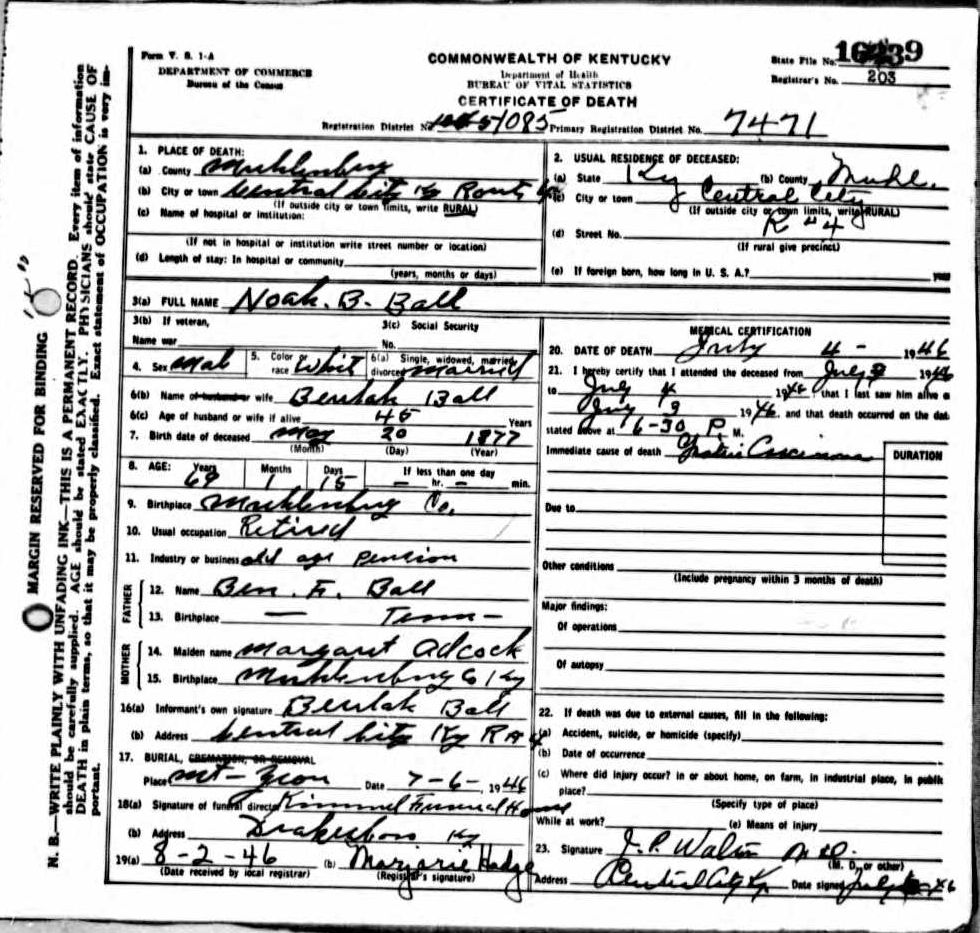 Form V. S. 1-A
DEPARTMENT OF COMMERCE
Bureau of the Census
COMMONWEALTH OF KENTUCKY
Department of Health
BUREAU OF VITAL STATISTICS
CERTIFICATE OF DEATH
State File No.
Registrar's No. 203
Registration District No. 1085 Primary Registration District No. 7471
1. PLACE OF DEATH:
(a) County Muhlenburg
(b) City or town Central City Ky Route 4
(If outside city or town limits, write RURAL)
(c) Name of hospital or institution:
(If not in hospital or institution write street number or location)
(d) Length of stay: In hospital or community
(years, months or days)
2. USUAL RESIDENCE OF DECEASED:
(a) State Ky (b) County Muhl.
(c) City or town Central City
(If outside city or town limits, write RURAL)
(d) Street No. R #4
(If rural give precinct)
(e) If foreign born, how long in U. S. A.? year
3(a) FULL NAME Noah. B. Ball
3(b) If veteran, 3(c) Social Security
Name war No.
4. Sex Mal 5. Color or race Whit 6(a) Single, widowed, married, divorced Married
6(b) Name of husband or wife Beulah Ball
6(c) Age of husband or wife if alive 45 Years
7. Birth date of deceased May 20 1877
(Month) (Day) (Year)
8. AGE: Years Months Days If less than one day
69 1 15 — hr. — min.
9. Birthplace Muhlenburg Co.
10. Usual occupation Retired
11. Industry or business old age pension
FATHER
12. Name Ben. F. Ball
13. Birthplace — Tenn —
MOTHER
14. Maiden name Margaret Adcock
15. Birthplace Muhlenburg Co Ky
16(a) Informant's own signature Beulah Ball
(b) Address Central City Ky R # 4
17. BURIAL, CREMATION, OR REMOVAL
Place Mt - Zion Date 7-6-, 1946
18(a) Signature of funeral director Kimmel Funeral Home
(b) Address Drakesboro Ky
19(a) 8-2-46 (b) Marjorie Hadge
(Date received by local registrar) (Registrar's signature)
MEDICAL CERTIFICATION
20. DATE OF DEATH July 4 - 1946
21. I hereby certify that I attended the deceased from July 1946
to July 4 1946 that I last saw him alive o
July 3 1946, and that death occurred on the dat
stated above at 6-30 P. M.
Immediate cause of death Carcinoma
DURATION
Due to
Other conditions
(Include pregnancy within 3 months of death)
Major findings:
Of operations
Of autopsy
22. If death was due to external causes, fill in the following:
(a) Accident, suicide, or homicide (specify)
(b) Date of occurrence
(c) Where did injury occur? In or about home, on farm, in industrial place, in public
place?
(Specify type of place)
While at work? (e) Means of injury
23. Signature J. P. Walton M D.
(M. D. or other)
Address Central City Ky. Date signed July 46
MARGIN RESERVED FOR BINDING
N. B.—WRITE PLAINLY WITH UNFADING INK—THIS IS A PERMANENT RECORD. Every item of information
should be carefully supplied. AGE should be stated EXACTLY. PHYSICIANS should state CAUSE OF
DEATH in plain terms, so that it may be properly classified. Exact statement of OCCUPATION is very im-
portant.